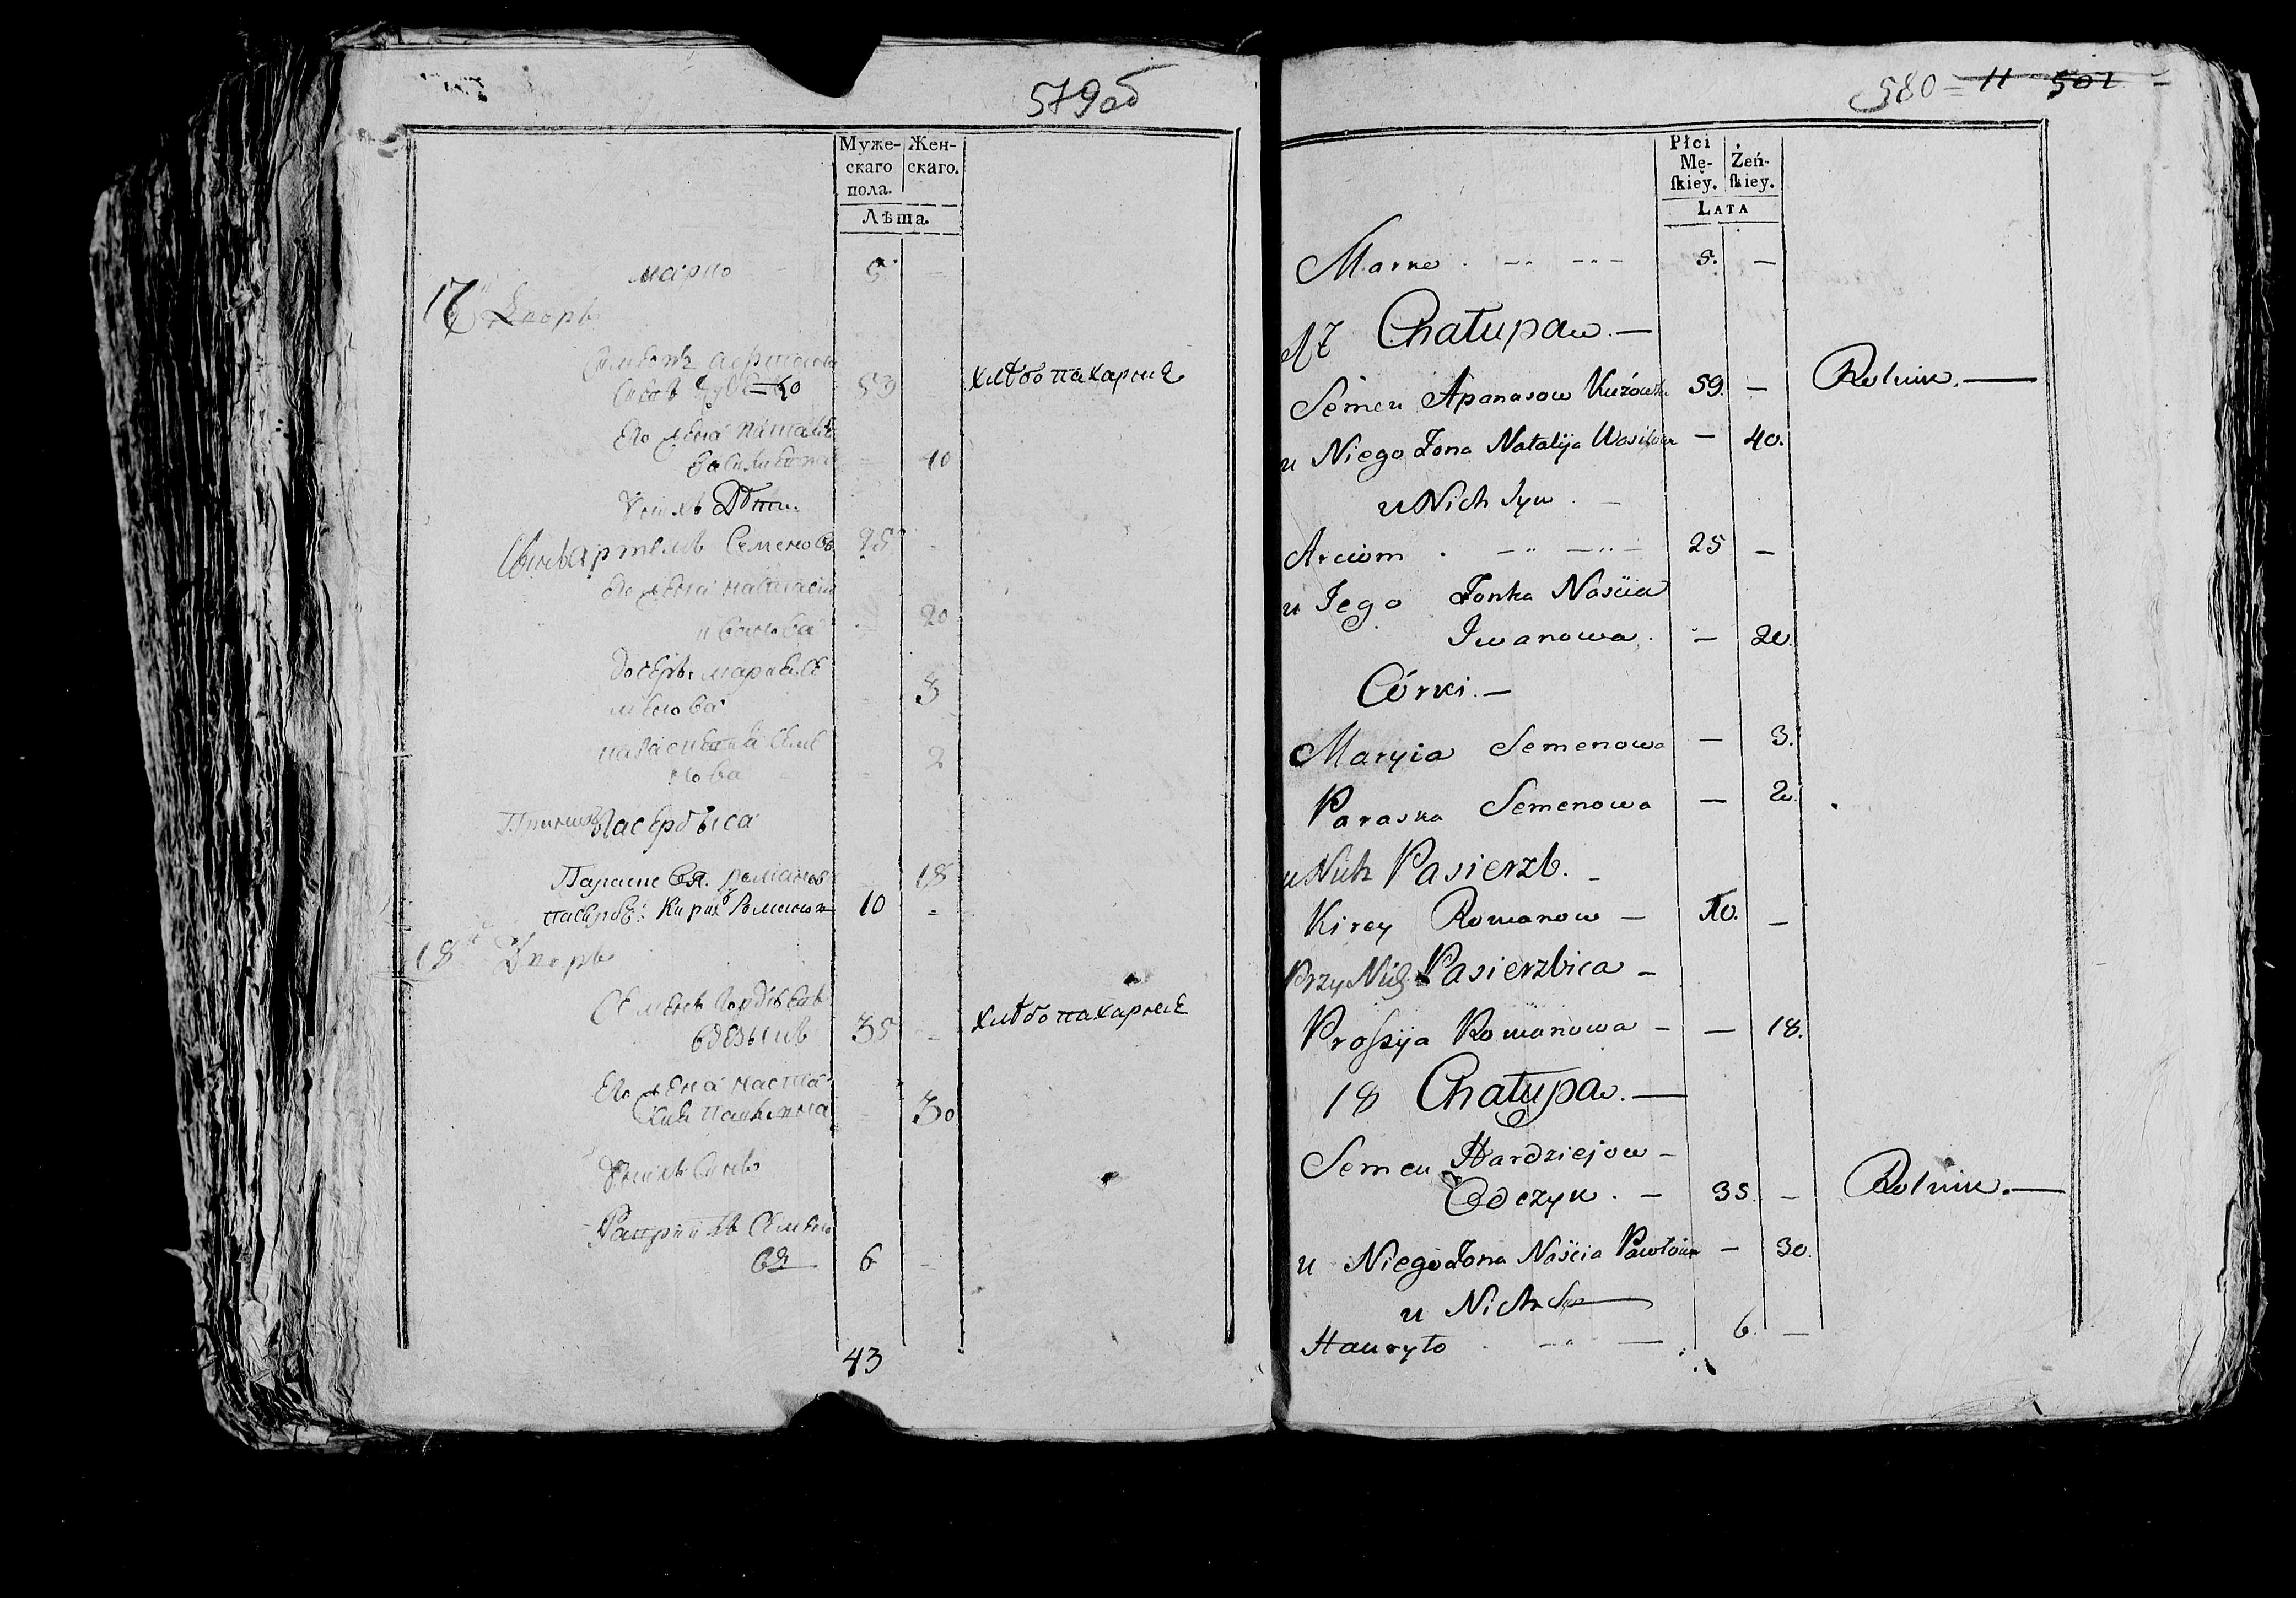 579об
Муже- Жен-
скаго скаго.
пола.
Лѣта.
марко 5.
17й Дворъ
53 хлѣбопахарные
Его жена наталья
40
У нихъ Дѣти.
Сынъ Артемъ Семеновъ 25
Его жена настасья
иванова 20
дочерь марья се
менова 3
параскевья семе
нова 2
Пасербыса
Параскевья романов 18
пасербъ: Кирей Романовъ 10 -
18й Дворъ
Семенъ Гордѣевъ
35 - хлѣбопахарные
Его жена наста
30
У нихъ Сынъ
Гаврила Семено
въ 6 -
43
580 = 11 501 -
Płci
Mę- Żeń-
ſkiey. ſkiey.
LATA
Marko 5. —
17 Chałupa. —
Semen Apanasow 59. — Rolnik. —
u Niego Żona Natalija Wasilowa — 40.
u Nich Syn
Arciom 25 —
u Jego Żonka Naścia
Iwanowa — 20.
Córki. —
Maryia Semenowa — 3.
Paraska Semenowa — 2.
u Nich Pasierzb.
Kirey Romanow — 10. —
Przy Nich Pasierzbica —
Proſsyja Romanowa — — 18.
18 Chałupa. —
Semen Hardziejow —
Odczyk. — 35. — Rolnik. —
u Niego Żona Naścia Pawłowa — 30.
u Nich Syn
Hauryło 6. —